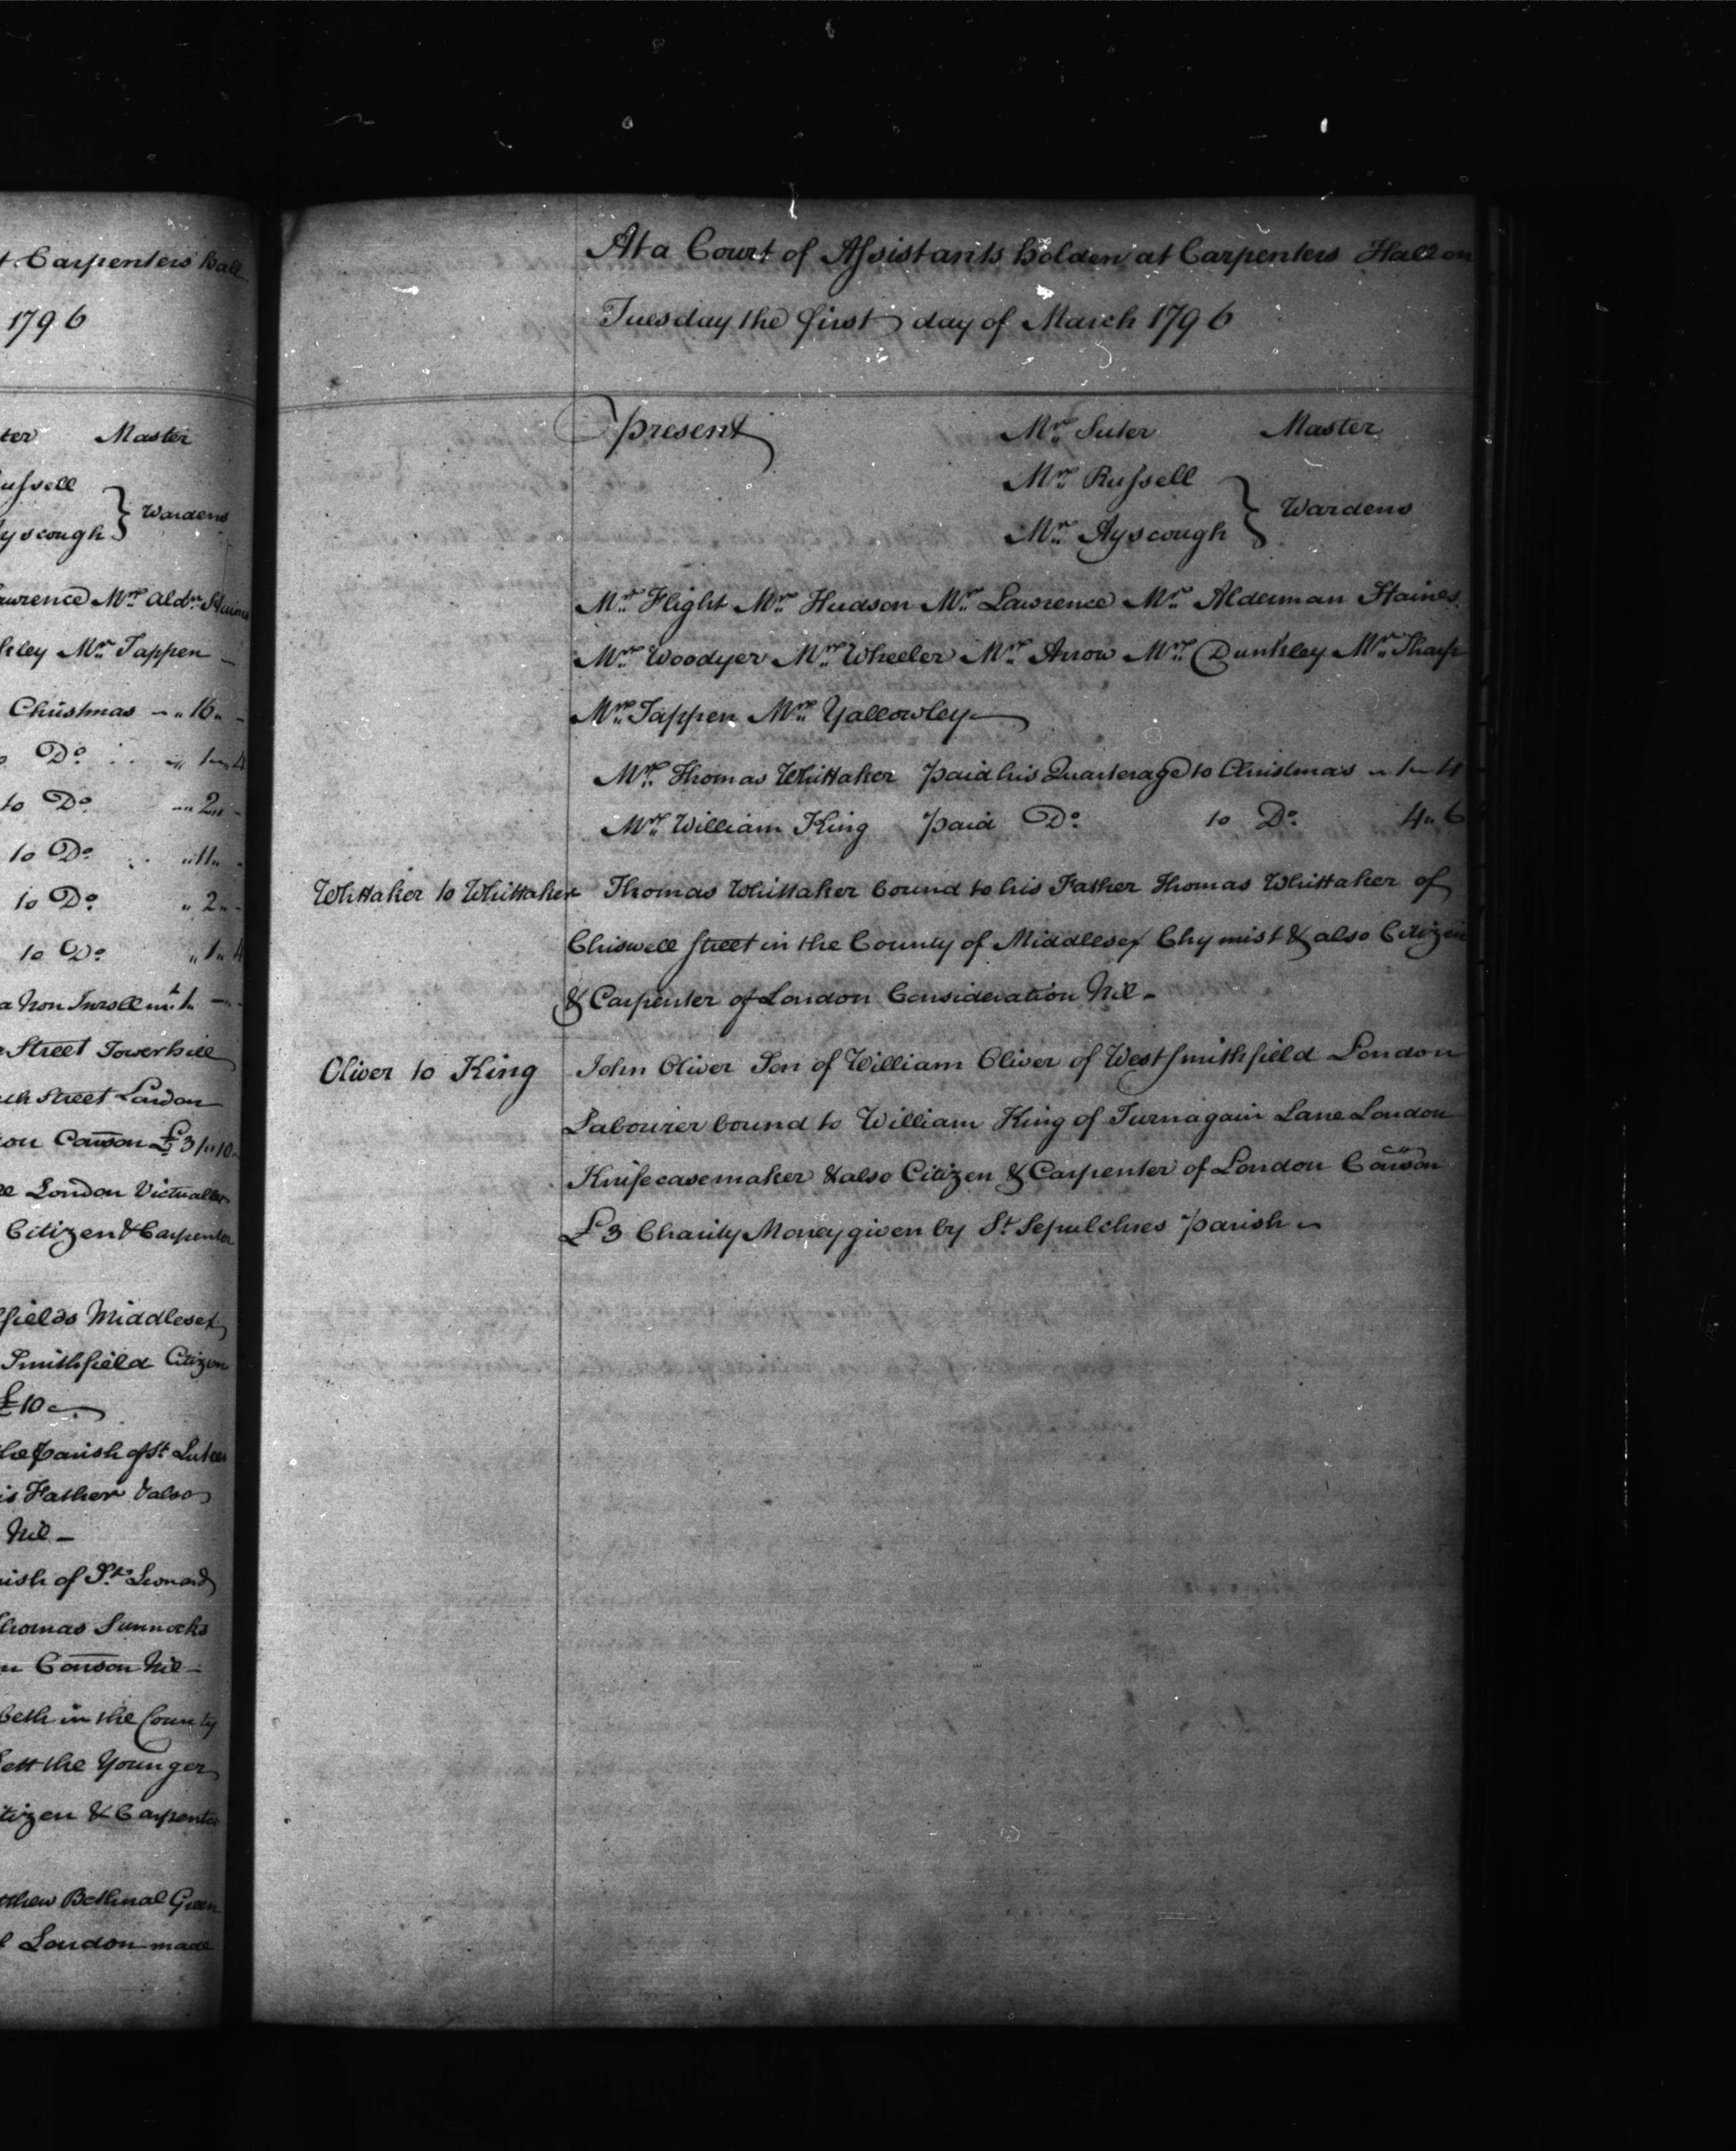 t Carpenters Hall
1796
ter Master
ussell
yscough } Wardens
awrence Mr. Aldn. Staines
kley Mr. Tappen
Christmas - " 16 " -
Do. " 1 " 4
to Do. " 2 " -
to Do. " 11 " -
to Do. " 2 " -
to Do. " 1 " 4
a Non Inrollmt.
Street Towerhill
ch Street London
on Conson £31 " 10
London Victualler
Citizen & Carpenter
fields Middlesex
Smithfield Citizen
£10
the Parish of St. Lukes
is Father & also
Nil -
ish of St. Leonard
Thomas Sunnocks
n Conson Nil -
beth in the County
ett the Younger
itizen & Carpenter
tthew Bethnal Green
London made
At a Court of Assistants holden at Carpenters Hall on
Tuesday the first day of March 1796
Present Mr. Suter Master
Mr. Russell
Mr. Ayscough } Wardens
Mr. Flight Mr. Hudson Mr. Lawrence Mr. Alderman Staines
Mr. Woodyer Mr. Wheeler Mr. Arrow Mr. Dunkley Mr. Sharp
Mr. Tappen Mr. Yallowley
Mr. Thomas Whittaker paid his Quarterage to Christmas " 1 " 4
Mr. William King paid Do. to Do. 4 " 6
Whittaker to Whittaker Thomas Whittaker bound to his Father Thomas Whittaker of
Chiswell Street in the County of Middlesex Chymist & also Citizen
& Carpenter of London Consideration Nil -
Oliver to King John Oliver Son of William Oliver of West Smithfield London
Labourer bound to William King of Turnagain Lane London
Knifecasemaker & also Citizen & Carpenter of London Conson
£3 Charity Money given by St. Sepulchres Parish